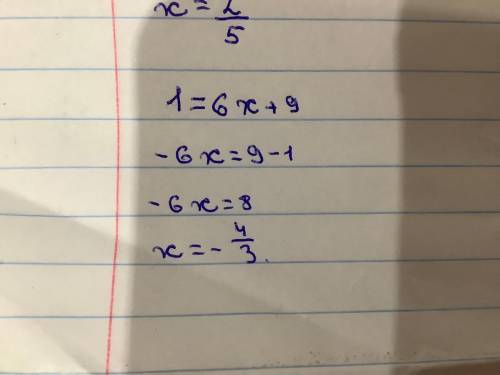 x = 2/5
1 = 6x + 9
- 6x = 9 - 1
- 6x = 8
x = - 4/3.